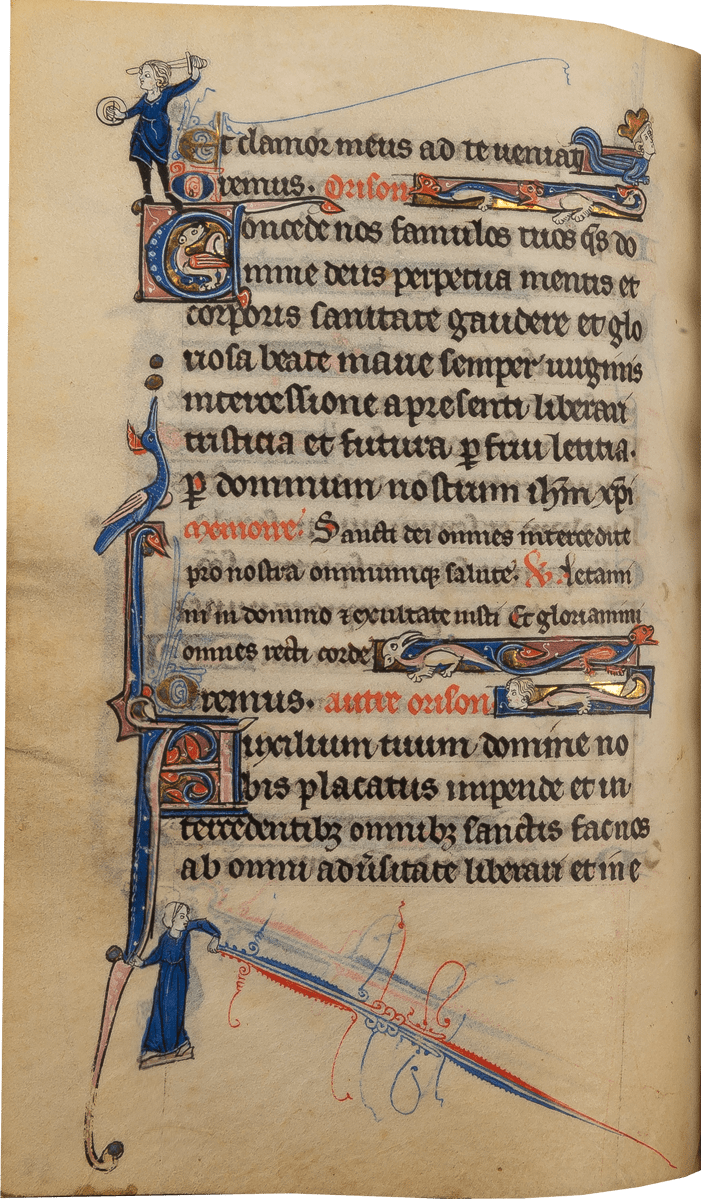 Et clamor meus ad te ueniat
Oremus. Orison
Concede nos famulos tuos qs do
mine deus perpetua mentis et
corporis sanitate gaudere et glo
riosa beate marie semper uirginis
intercessione a presenti liberari
tristicia et futura p frui leticia.
p dominum nostrum ihm xpi
memoire. Sancti dei omnes intercedite
pro nostra omniumq salute. V Letami
ni in domino ⁊ exultate iusti Et gloriamini
omnes recti corde
Oremus. autre orison
Auxilium tuum domine no
bis placatus impende et in
tercedentibꝫ omnibꝫ sanctis fac nos
ab omni adusitate liberari et in e